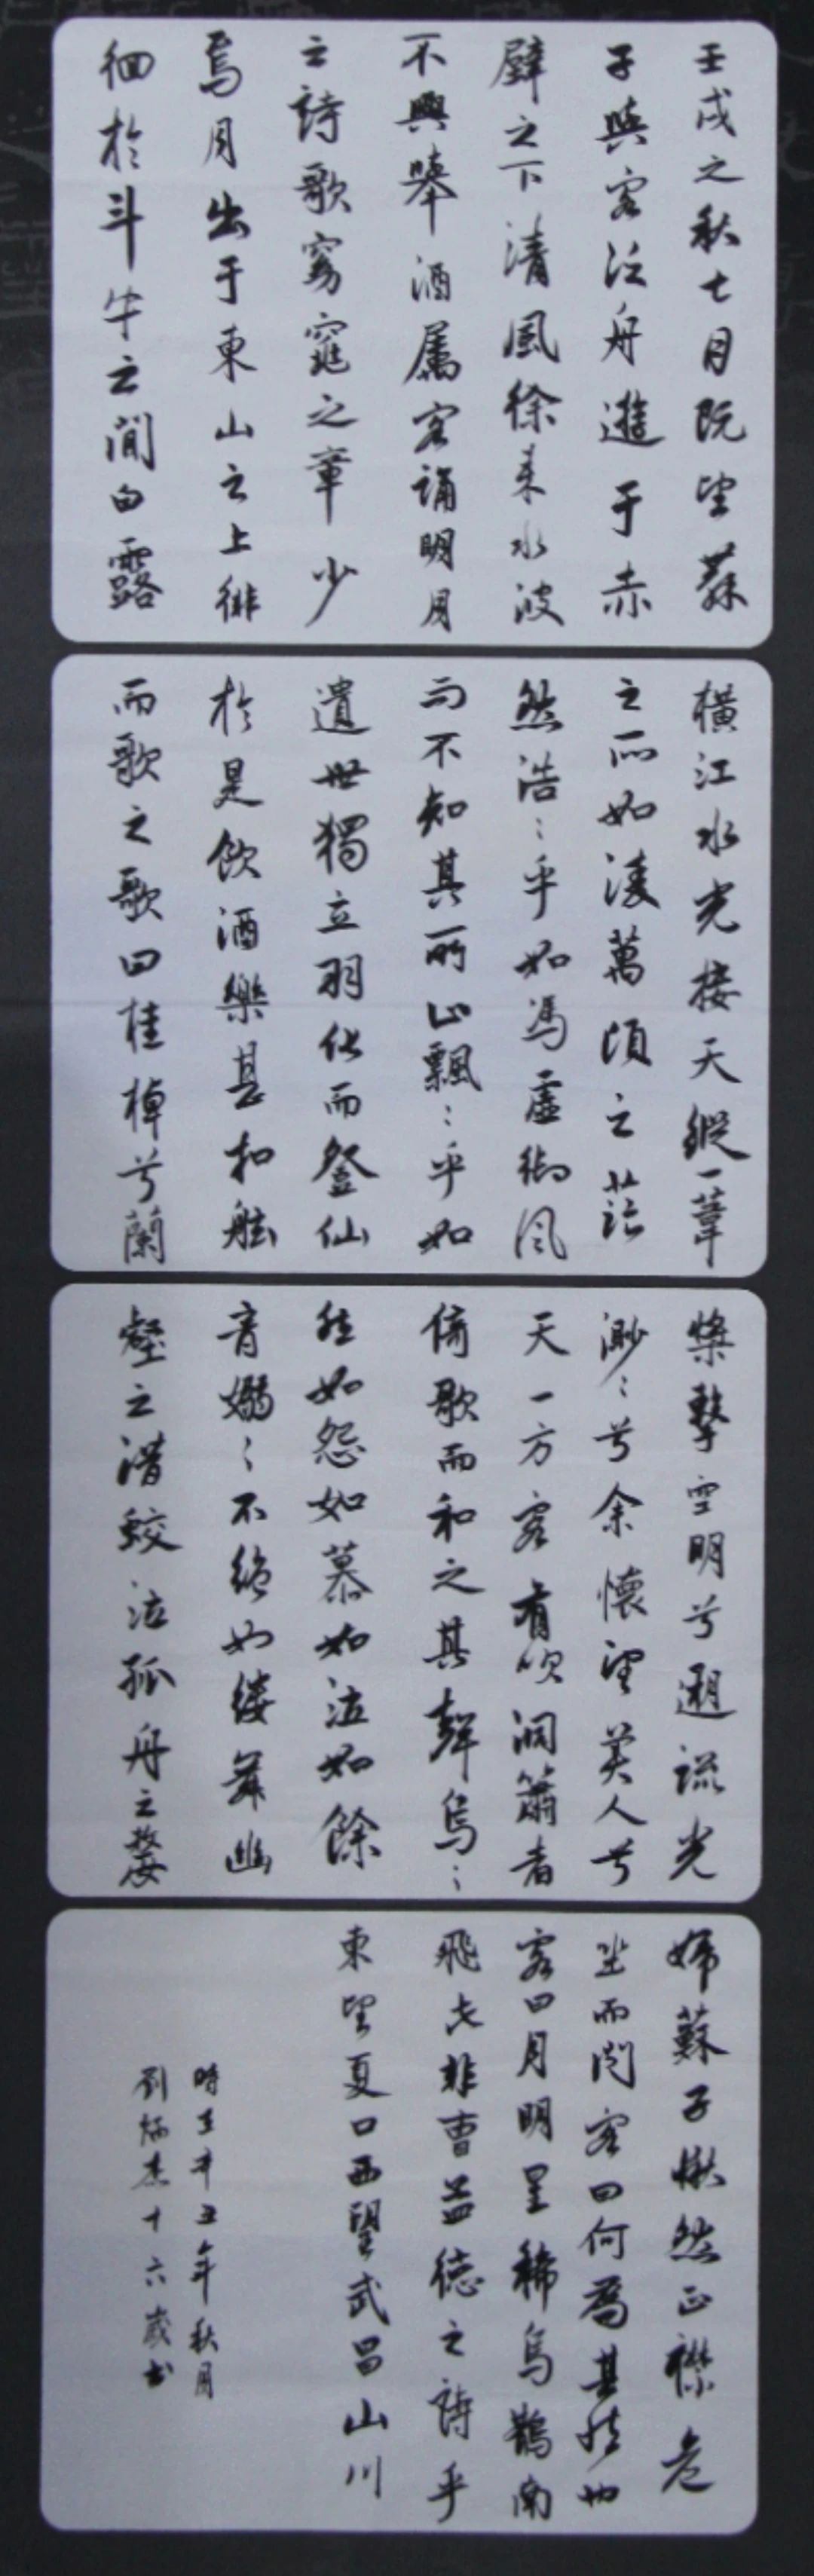 壬戌之秋七月既望蘇
子與客泛舟遊于赤
壁之下清風徐来水波
不興舉酒属客誦明月
之詩歌窈窕之章少
焉月出于東山之上徘
徊於斗牛之間白露
橫江水光接天縱一葦
之所如淩萬頃之茫
然浩〻乎如馮虛御风
而不知其所止飄〻乎如
遺世獨立羽化而登仙
於是飲酒樂甚扣舷
而歌之歌曰桂棹兮蘭
槳擊空明兮遡流光
渺〻兮余懷望美人兮
天一方客有吹洞簫者
倚歌而和之其聲烏〻
然如怨如慕如泣如餘
音嫋〻不絕如縷舞幽
壑之潛蛟泣孤舟之嫠
婦蘇子愀然正襟危
坐而問客曰何為其然也
客曰月明星稀烏鵲南
飛此非曹孟德之詩乎
東望夏口西望武昌山川
時在辛丑年秋月
劉炳杰十六歲书